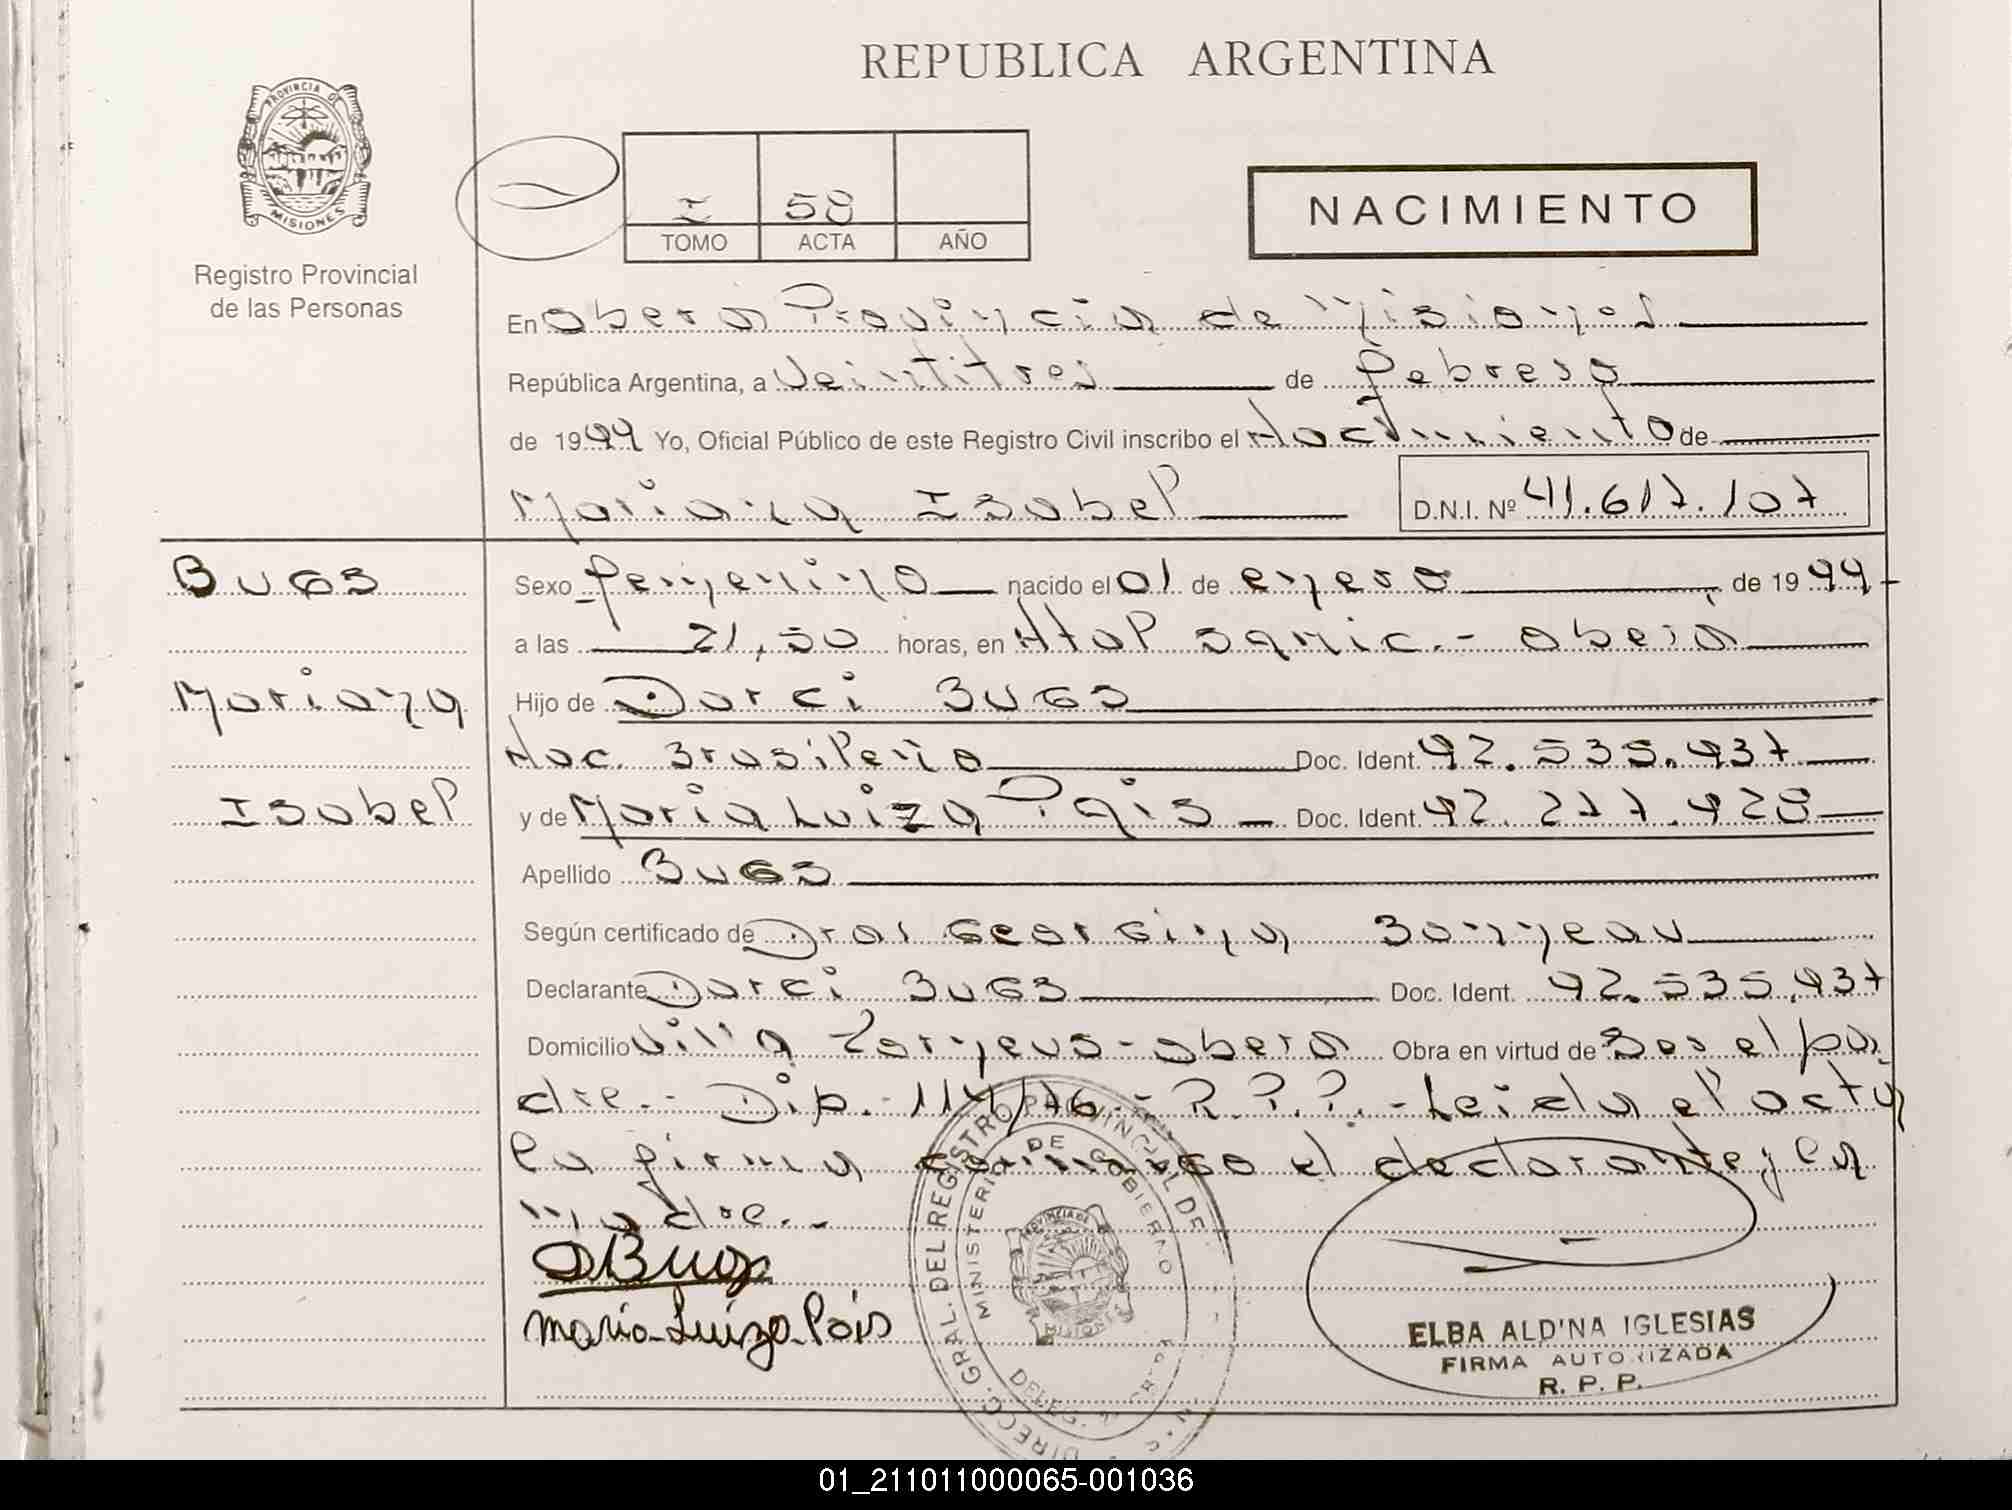 REPUBLICA ARGENTINA
PROVINCIA DE
MISIONES
Registro Provincial
de las Personas
I 58
TOMO ACTA AÑO
NACIMIENTO
En Oberá Provincia de Misiones
República Argentina, a Veintitres de Febrero
de 1999 Yo, Oficial Público de este Registro Civil inscribo el Nacimiento de
Mariana Isabel D.N.I. Nº 41.617.107
Bugs
Mariana
Isabel
Sexo femenino nacido el 01 de enero de 1999
a las 21,50 horas, en Htal Samic.- Oberá
Hijo de Darci Bugs
Nac. Brasileño Doc. Ident. 92.535.937
y de Maria Luiza Pais Doc. Ident. 92.277.928
Apellido Bugs
Según certificado de Dra. Georgina Bonneau
Declarante Darci Bugs Doc. Ident. 92.535.937
Domicilio Villa Oberá Obra en virtud de Ser el pa
dre.- Dip. 114/76.- R.P.P.- Leida el acta
la firma conmigo el declarante y la
madre.-
DBugs
Maria Luiza Pais
DIRECC. GRAL. DEL REGISTRO PROVINCIAL DE
MINISTERIO DE GOBIERNO
PROVINCIA DE
MISIONES
ELBA ALDINA IGLESIAS
FIRMA AUTORIZADA
R. P. P.
01_211011000065-001036